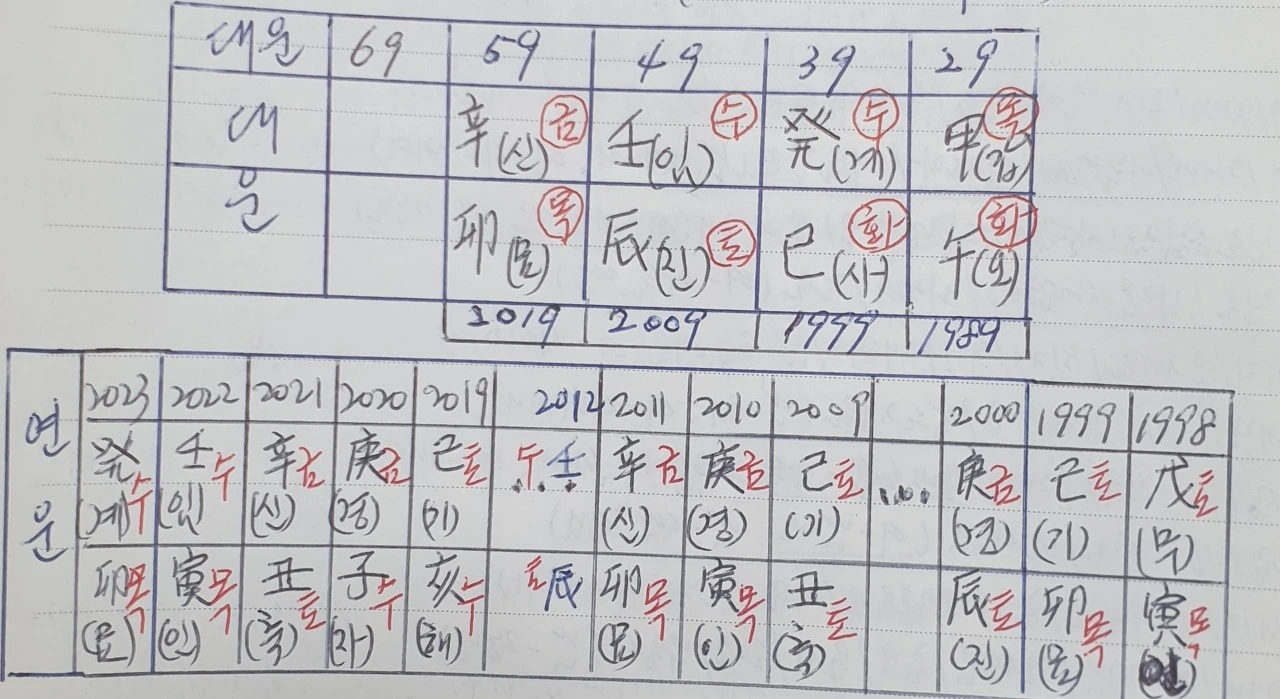 대운 69 59 49 39 29
대 辛(신) 금 壬(임) 수 癸(계) 수 甲(갑) 목
운 卯(묘) 목 辰(진) 토 巳(사) 화 午(오) 화
2019 2009 1999 1989
연 2023 2022 2021 2020 2019 2012 2011 2010 2009 2000 1999 1998
癸수 壬수 辛금 庚금 己토 수壬 辛금 庚금 己토 .... 庚금 己토 戊토
운 (계) (임) (신) (경) (기) (신) (경) (기) (경) (기) (무)
卯목 寅목 丑토 子수 亥수 토辰 卯목 寅목 丑토 辰토 卯목 寅목
(묘) (인) (축) (자) (해) (묘) (인) (축) (진) (묘)